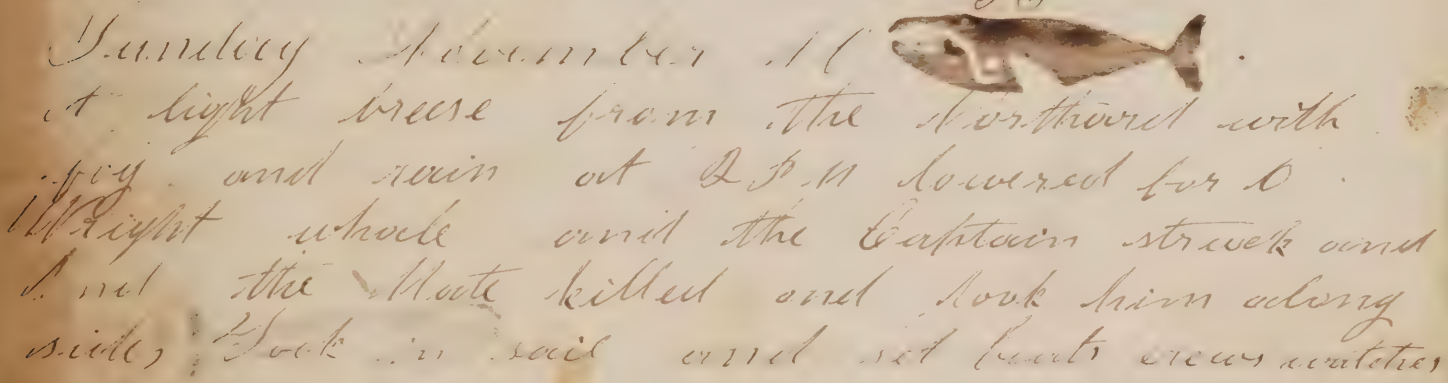 Sunday November 11
A light breese from the Northard with
fog and rain at 2 P M lowered for a
Wright whale and the Captain struck and
And the Mate killed and took him along
side, Took in sail and set boats crews watches